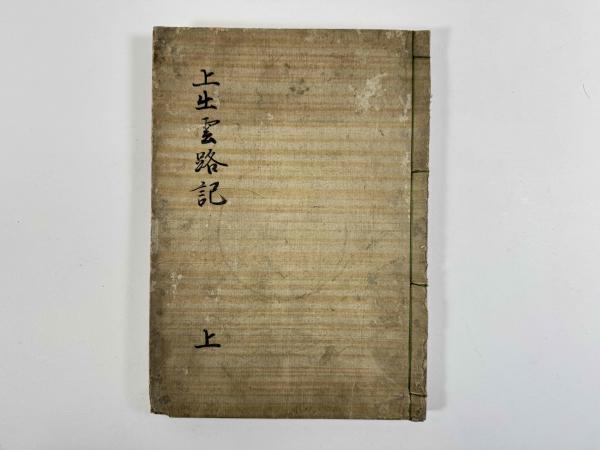 上生雲路記
上